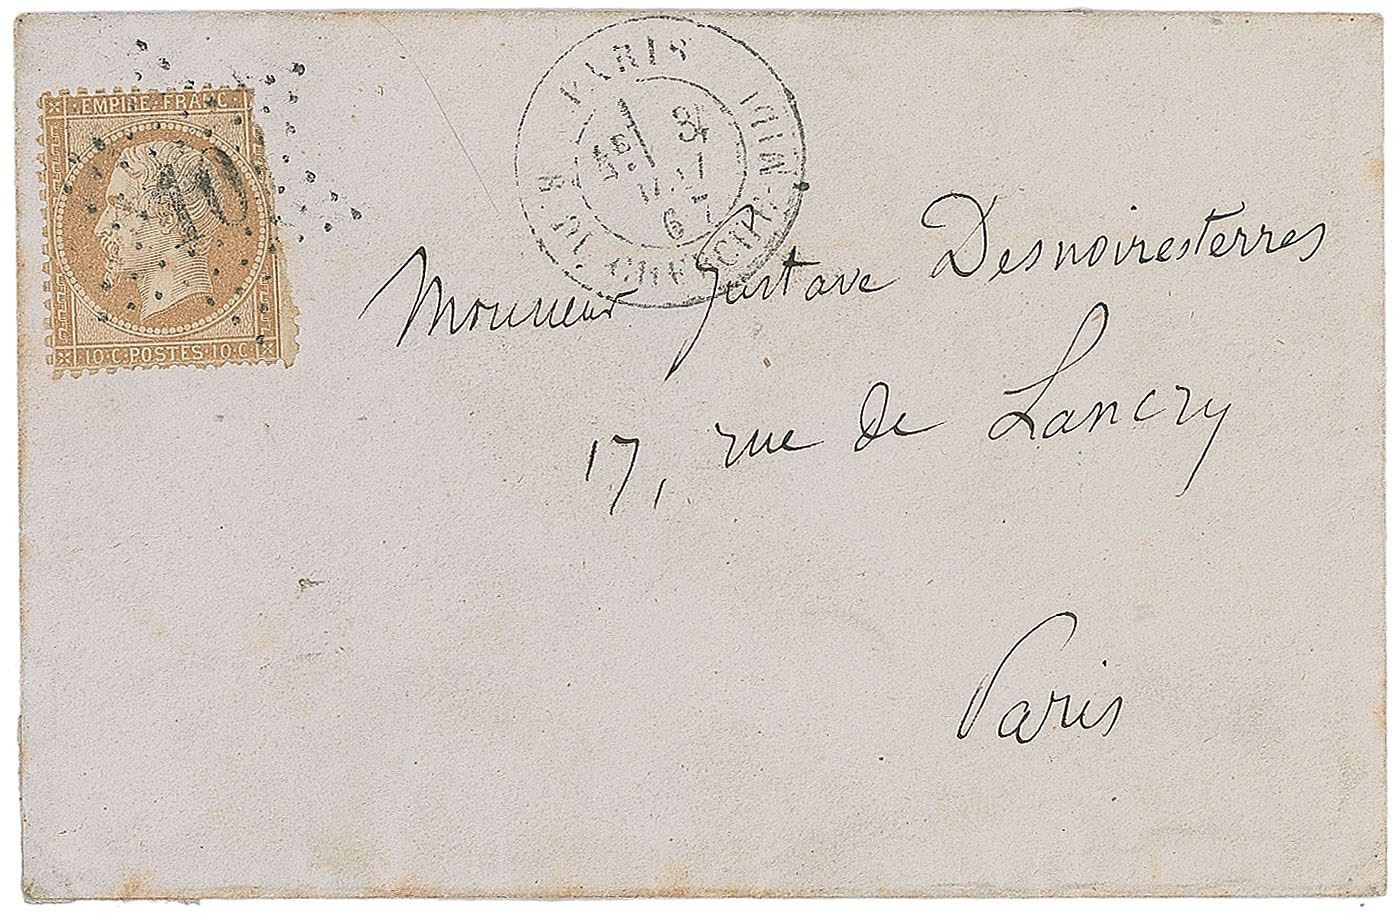 EMPIRE·FRANC
10
10·C·POSTES·10·C
PARIS
3
67
Monsieur Gustave Desnoiresterres
17, rue de Lancry
Paris